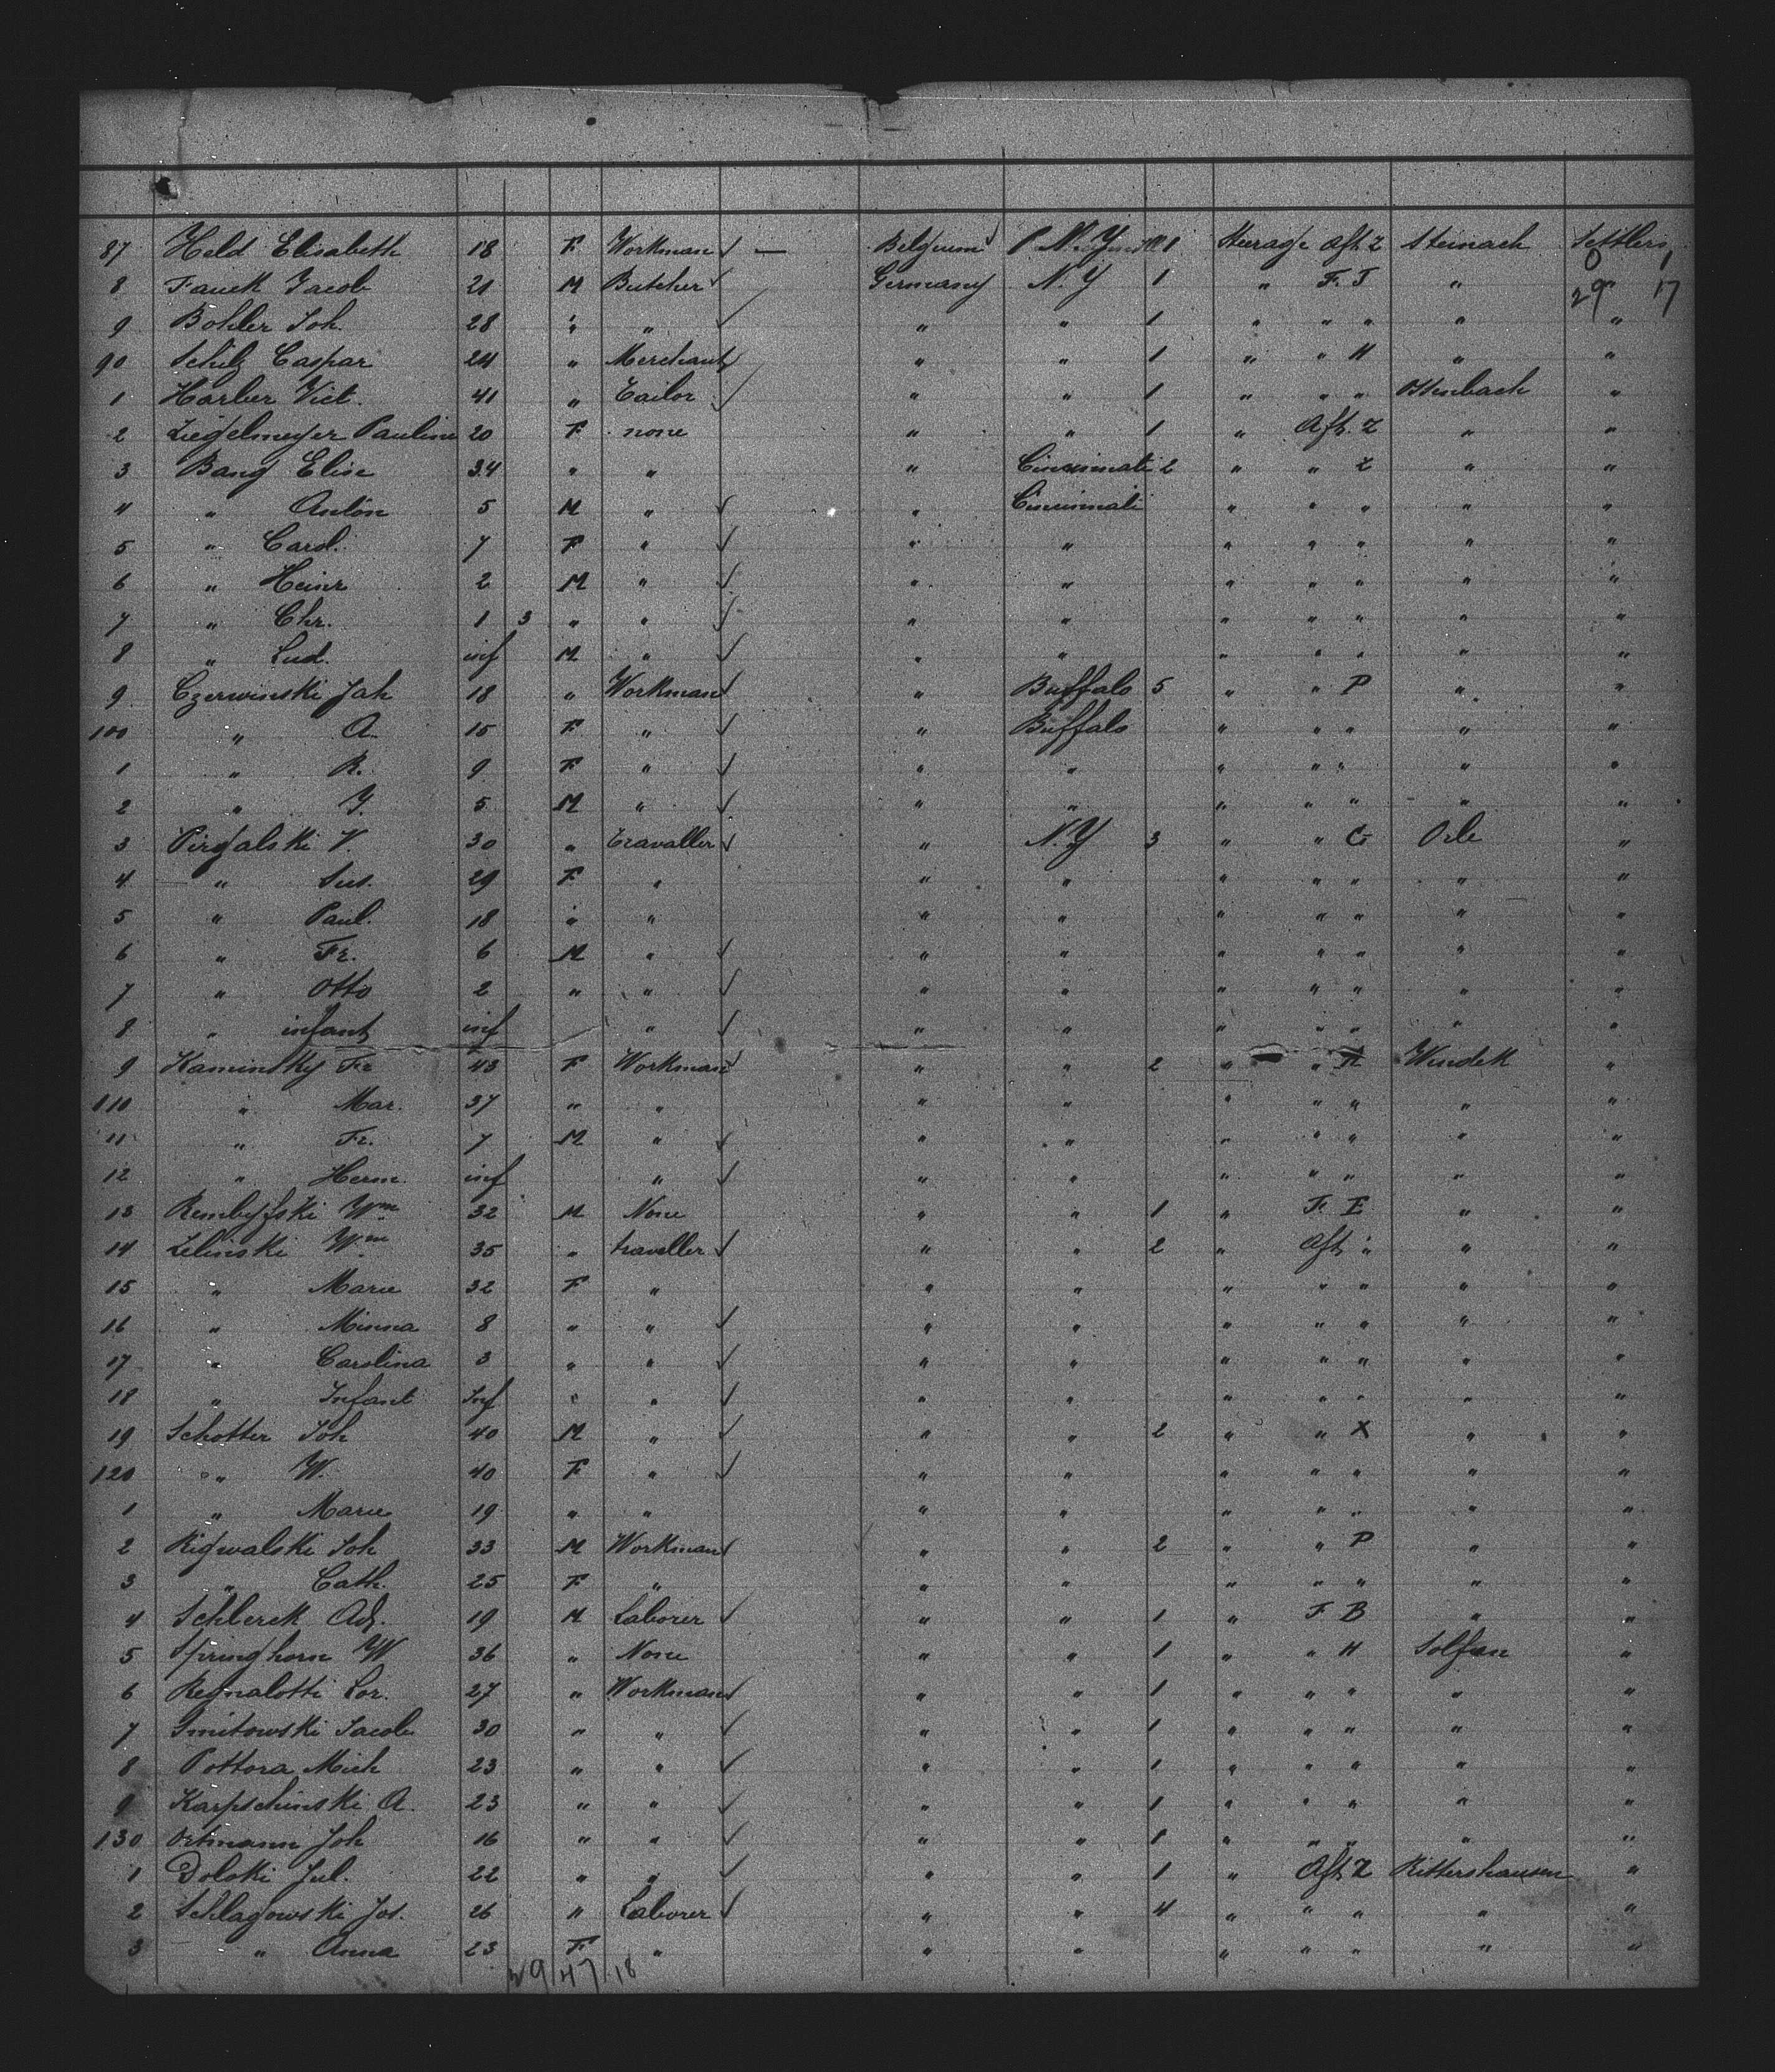 87 Held Elisabeth 18 F Workman ✓ — Belgium N.Y 1 Steerage Aft. Z Steinach Settlers
8 Fauck Jacob 21 M Butcher ✓ Germany N.Y 1 " F. J " " 29 17
9 Bohler Joh. 28 " " ✓ " " 1 " " " " "
90 Schilz Caspar 24 " Merchant ✓ " " 1 " " H " "
1 Harber Vict. 41 " Tailor ✓ " " 1 " " " Ottenbach "
2 Ziegelmeyer Pauline 20 F none " " 1 " Aft. Z " "
3 Bang Elise 34 " " " Cincinnati 2 " " Z " "
4 " Anton 5 M " ✓ " Cincinnati " " " " "
5 " Carol. 7 F " ✓ " " " " " " "
6 " Heinr 2 M " ✓ " " " " " " "
7 " Chr. 1 3 " " ✓ " " " " " " "
8 " Lud. inf M " ✓ " " " " " " "
9 Czerwinski Joh 18 " Workman ✓ " Buffalo 5 " " P " "
100 " A. 15 F " ✓ " Buffalo " " " " "
1 " R. 9 F " ✓ " " " " " " "
2 " J. 5 M " ✓ " " " " " " "
3 Pirgalski V. 30 " travaller ✓ " N.Y 3 " " G Orle "
4 " Sus. 29 F " " " " " " " "
5 " Paul. 18 " " " " " " " " "
6 " Fr. 6 M " ✓ " " " " " " "
7 " Otto 2 " " ✓ " " " " " " "
8 " infant inf " ✓ " " " " " " "
9 Kaminsky Fr 43 F Workman ✓ " " 2 " " Windek "
110 " Mar. 37 " " " " " " " " "
11 " Fr. 7 M " ✓ " " " " " " "
12 " Herm. inf " ✓ " " " " " " "
13 Rembyfski Wm 32 M None " " 1 " F. E " "
14 Zelinski Wm 35 " traveller ✓ " " 2 " Aft " " "
15 " Marie 32 F " " " " " " " "
16 " Minna 8 " " ✓ " " " " " " "
17 " Carolina 3 " " ✓ " " " " " " "
18 " Infant Inf " " ✓ " " " " " " "
19 Schotter Joh 40 M " ✓ " " 2 " " X " "
120 " W. 40 F " ✓ " " " " " " "
1 " Marie 19 " " " " " " " " "
2 Rigwalski Joh 33 M Workman ✓ " " 2 " " P " "
3 " Cath. 25 F " " " " " " " "
4 Schlerek Ad. 19 M Laborer ✓ " " 1 " F B " "
5 Springhorn W 36 " None " " 1 " " H Solfan "
6 Regnalotti Lor. 27 " Workman ✓ " " 1 " " " " "
7 Smitowski Jacob 30 " " ✓ " " 1 " " " " "
8 Pottora Mich 23 " " ✓ " " 1 " " " " "
9 Karpschinski A. 23 " " ✓ " " 1 " " " " "
130 Ortmann Joh 16 " " ✓ " " 1 " " " " "
1 Doloki Jul. 22 " " ✓ " " 1 " Aft. Z Rittershausen "
2 Schlagowski Jos. 26 " Laborer ✓ " " 4 " " " " "
3 " Anna 23 F " " " " " " " "
29 47 18